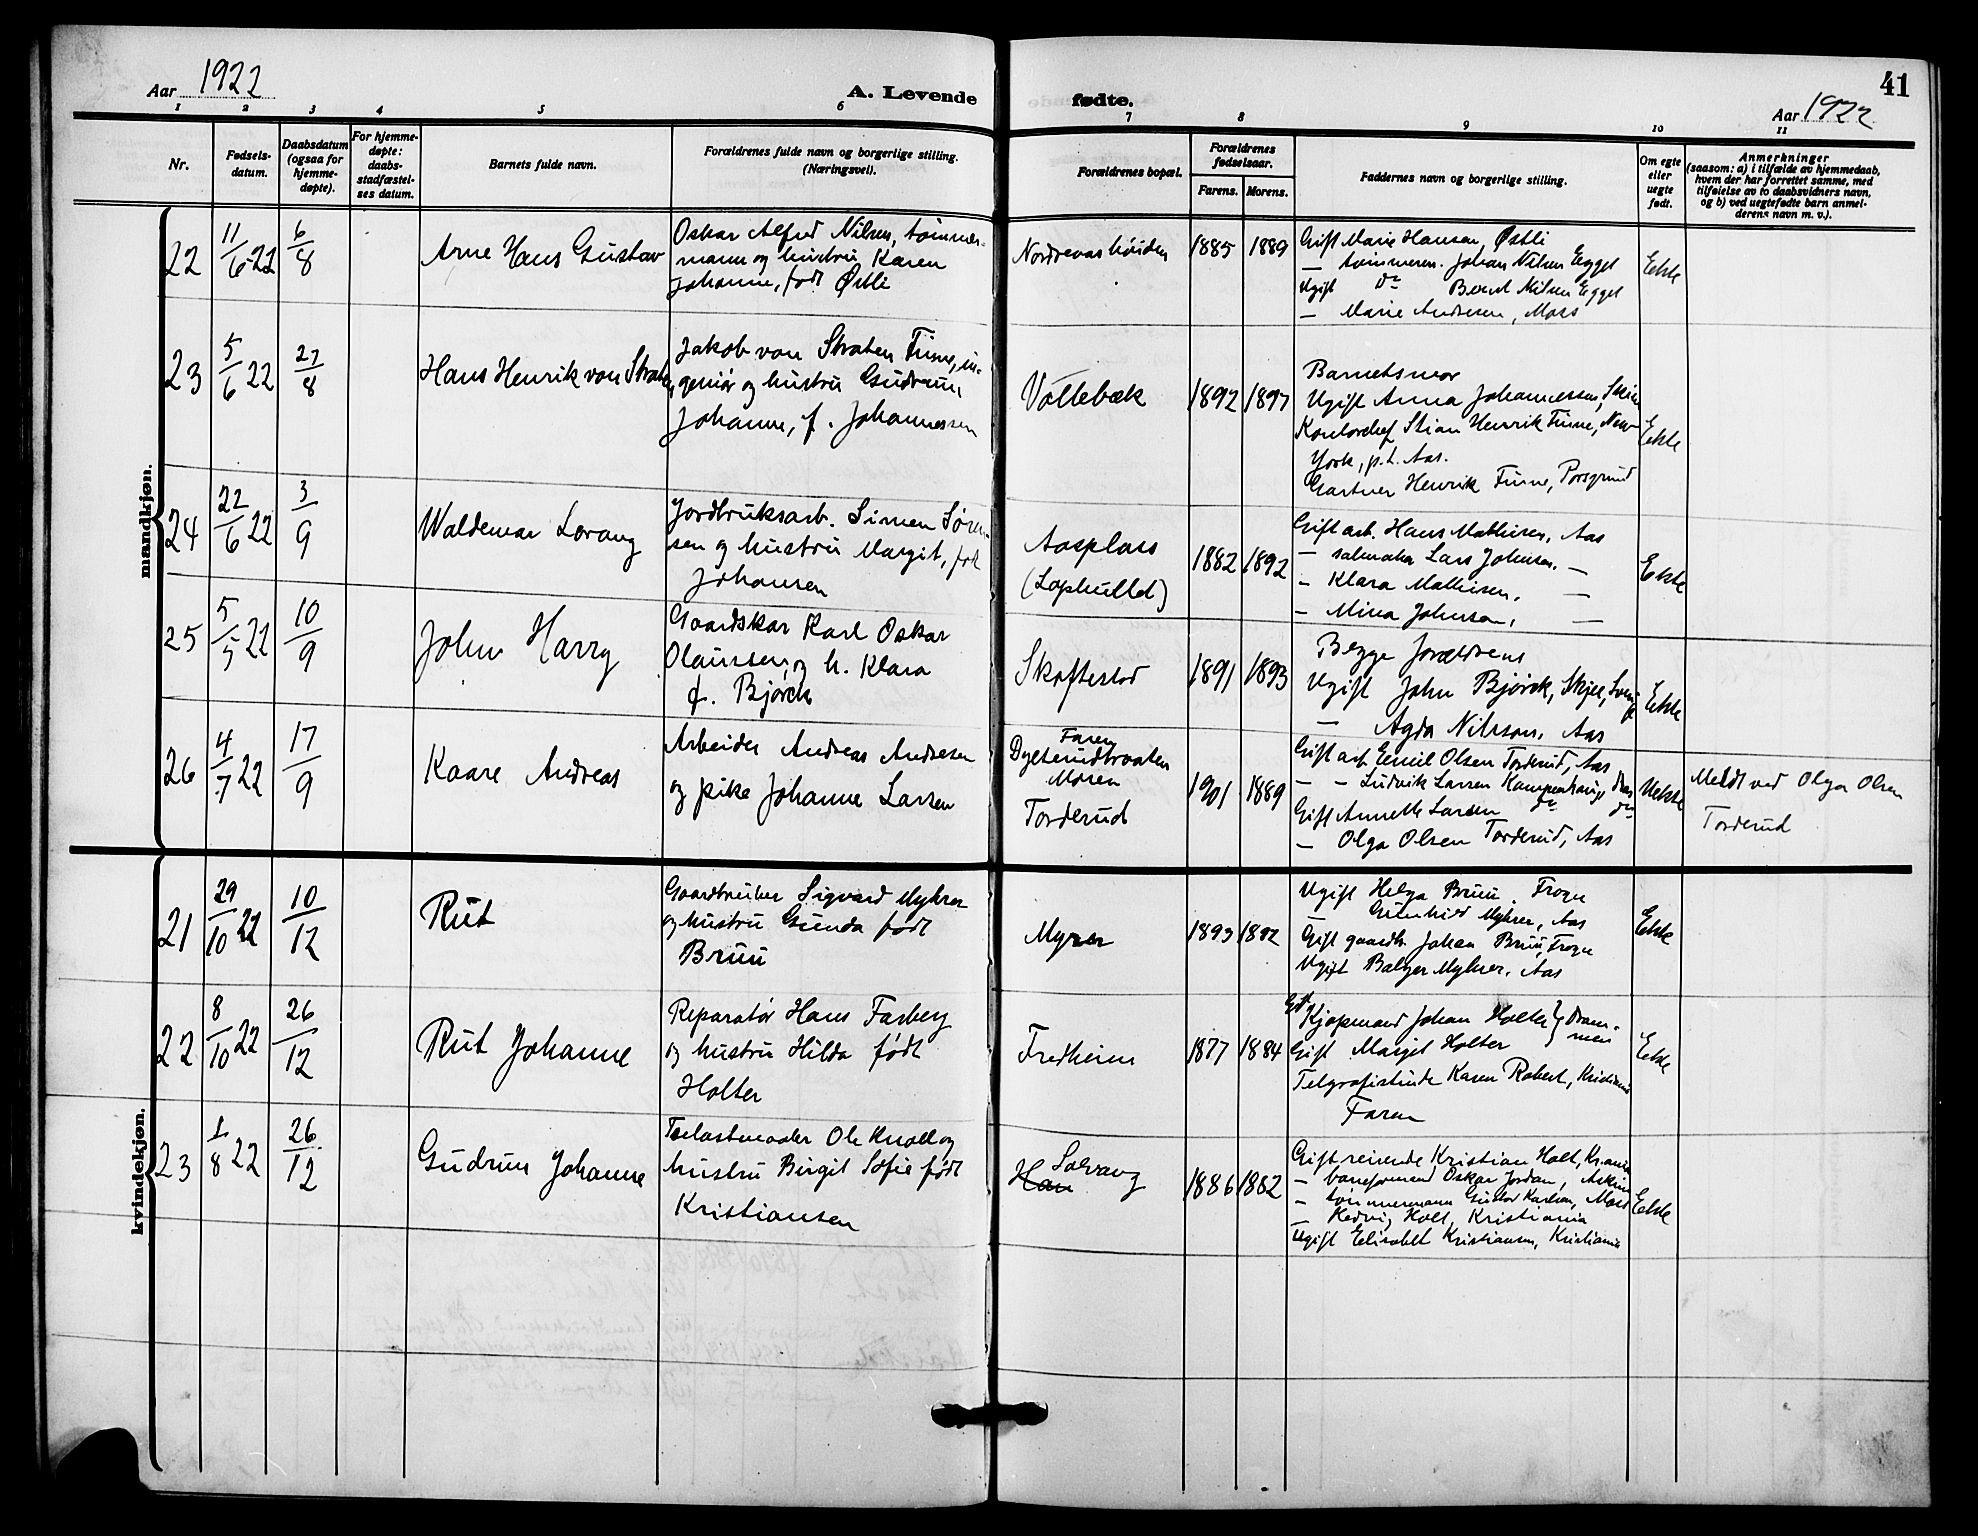 Aar 1922
A. Levende
fødte.
41
Aar 1922
1 2 3 4 5 6 7 8 9 10 11
Nr.
Fødsels-
datum.
Daabsdatum
(ogsaa for
hjemme-
døpte).
For hjemme-
døpte:
daabs-
stadfæstel-
ses datum.
Barnets fulde navn.
Forældrenes fulde navn og borgerlige stilling.
(Næringsvei).
Forældrenes bopæl.
Forældrenes
fødselsaar.
Farens. Morens.
Faddernes navn og borgerlige stilling.
Om egte
eller
uegte
født.
Anmerkninger
(saasom: a) i tilfælde av hjemmedaab,
hvem der har forrettet samme, med
tilføielse av to daabsvidners navn,
og b) ved uegtefødte barn anmel-
derens navn m. v.).
mandkjøn.
22
11/6-22
6/8
Arne Hans Gustav
Oskar Alfred Nilsen, tømmer-
mann og hustru Karen
Johanne, født Østli
1885 1889
Gift Marie Hansen, Østli
— tømmerm. Johan Nilsen Egget
Ugift do Bernt Nilsen Egget
— Marie Andresen, Moss
Ekte
23
5/6 22
27/8
Hans Henrik von Straten
Jakob von Straten Finne, in-
geniør og hustru Gudrun
Johanne, f. Johannessen
Vollebæk
1892 1897
Barnets mor
Ugift Anna Johannessen, Skien
Kontorchef Stian Henrik Finne, New-
York, p.t. Aas.
Gartner Henrik Finne, Porsgrund
Ekte
24
22/6 22
3/9
Waldemar Lorang
Jordbruksarb. Simen Søren-
sen og hustru Margit, født
Johansen
Aasplass
1882 1892
Gift arb. Hans Mathisen, Aas
— salmaker Lars Johnsen, —
— Klara Mathisen, —
— Mina Johnsen, —
Ekte
25
5/5 22
10/9
John Harry
Gaardskar Karl Oskar
Olaussen, og h. Klara
f. Bjørck
Skoftestad
1891 1893
Begge forældrene
Ugift John Bjørck,
— Agda Nilsson, Aas
Ekte
26
4/7 22
17/9
Kaare Andreas
Arbeider Andreas Andresen
og pike Johanne Larsen
Faren
Moren
Torderud
1901 1889
Gift arb. Emil Olsen Torderud, Aas
— — Ludvik Larsen
Gift Annette Larsen do do
— Olga Olsen Torderud, Aas
Uekte
Meldt ved Olga Olsen
Torderud
kvindekjøn.
21
29/10 22
10/12
Rut
Gaardbruker Sigvard Myhrer
og hustru Gunda født
Bruu
Myrer
1893 1892
Ugift Helga Bruu, Frogn
— Gunhild Myhrer, Aas
Gift gaardb. Johan Bruu, Frogn
Ugift Balzer Myhrer, Aas
Ekte
22
8/10 22
26/12
Rut Johanne
Reparatør Hans Farberg
og hustru Hilda født
Holter
Fredheim
1877 1884
Gift Kjøpmand Johan Holter } Dram-
Gift Margit Holter } men
Telegrafistinde Karen Robert, Kristiania
Faren
Ekte
23
1/8 22
26/12
Gudrun Johanne
Ole Knoll og
hustru Birgit Sofie født
Kristiansen
Solvang
Hau
1886 1882
Gift reisende Kristian Holt, Kr.ania
— baneformand Oskar Jordan, Askim
— tømmermann Gustav Karlsen, Moss
— Hedvig Holt, Kristiania
Ugift Elisabet Kristiansen, Kristiania
Ekte